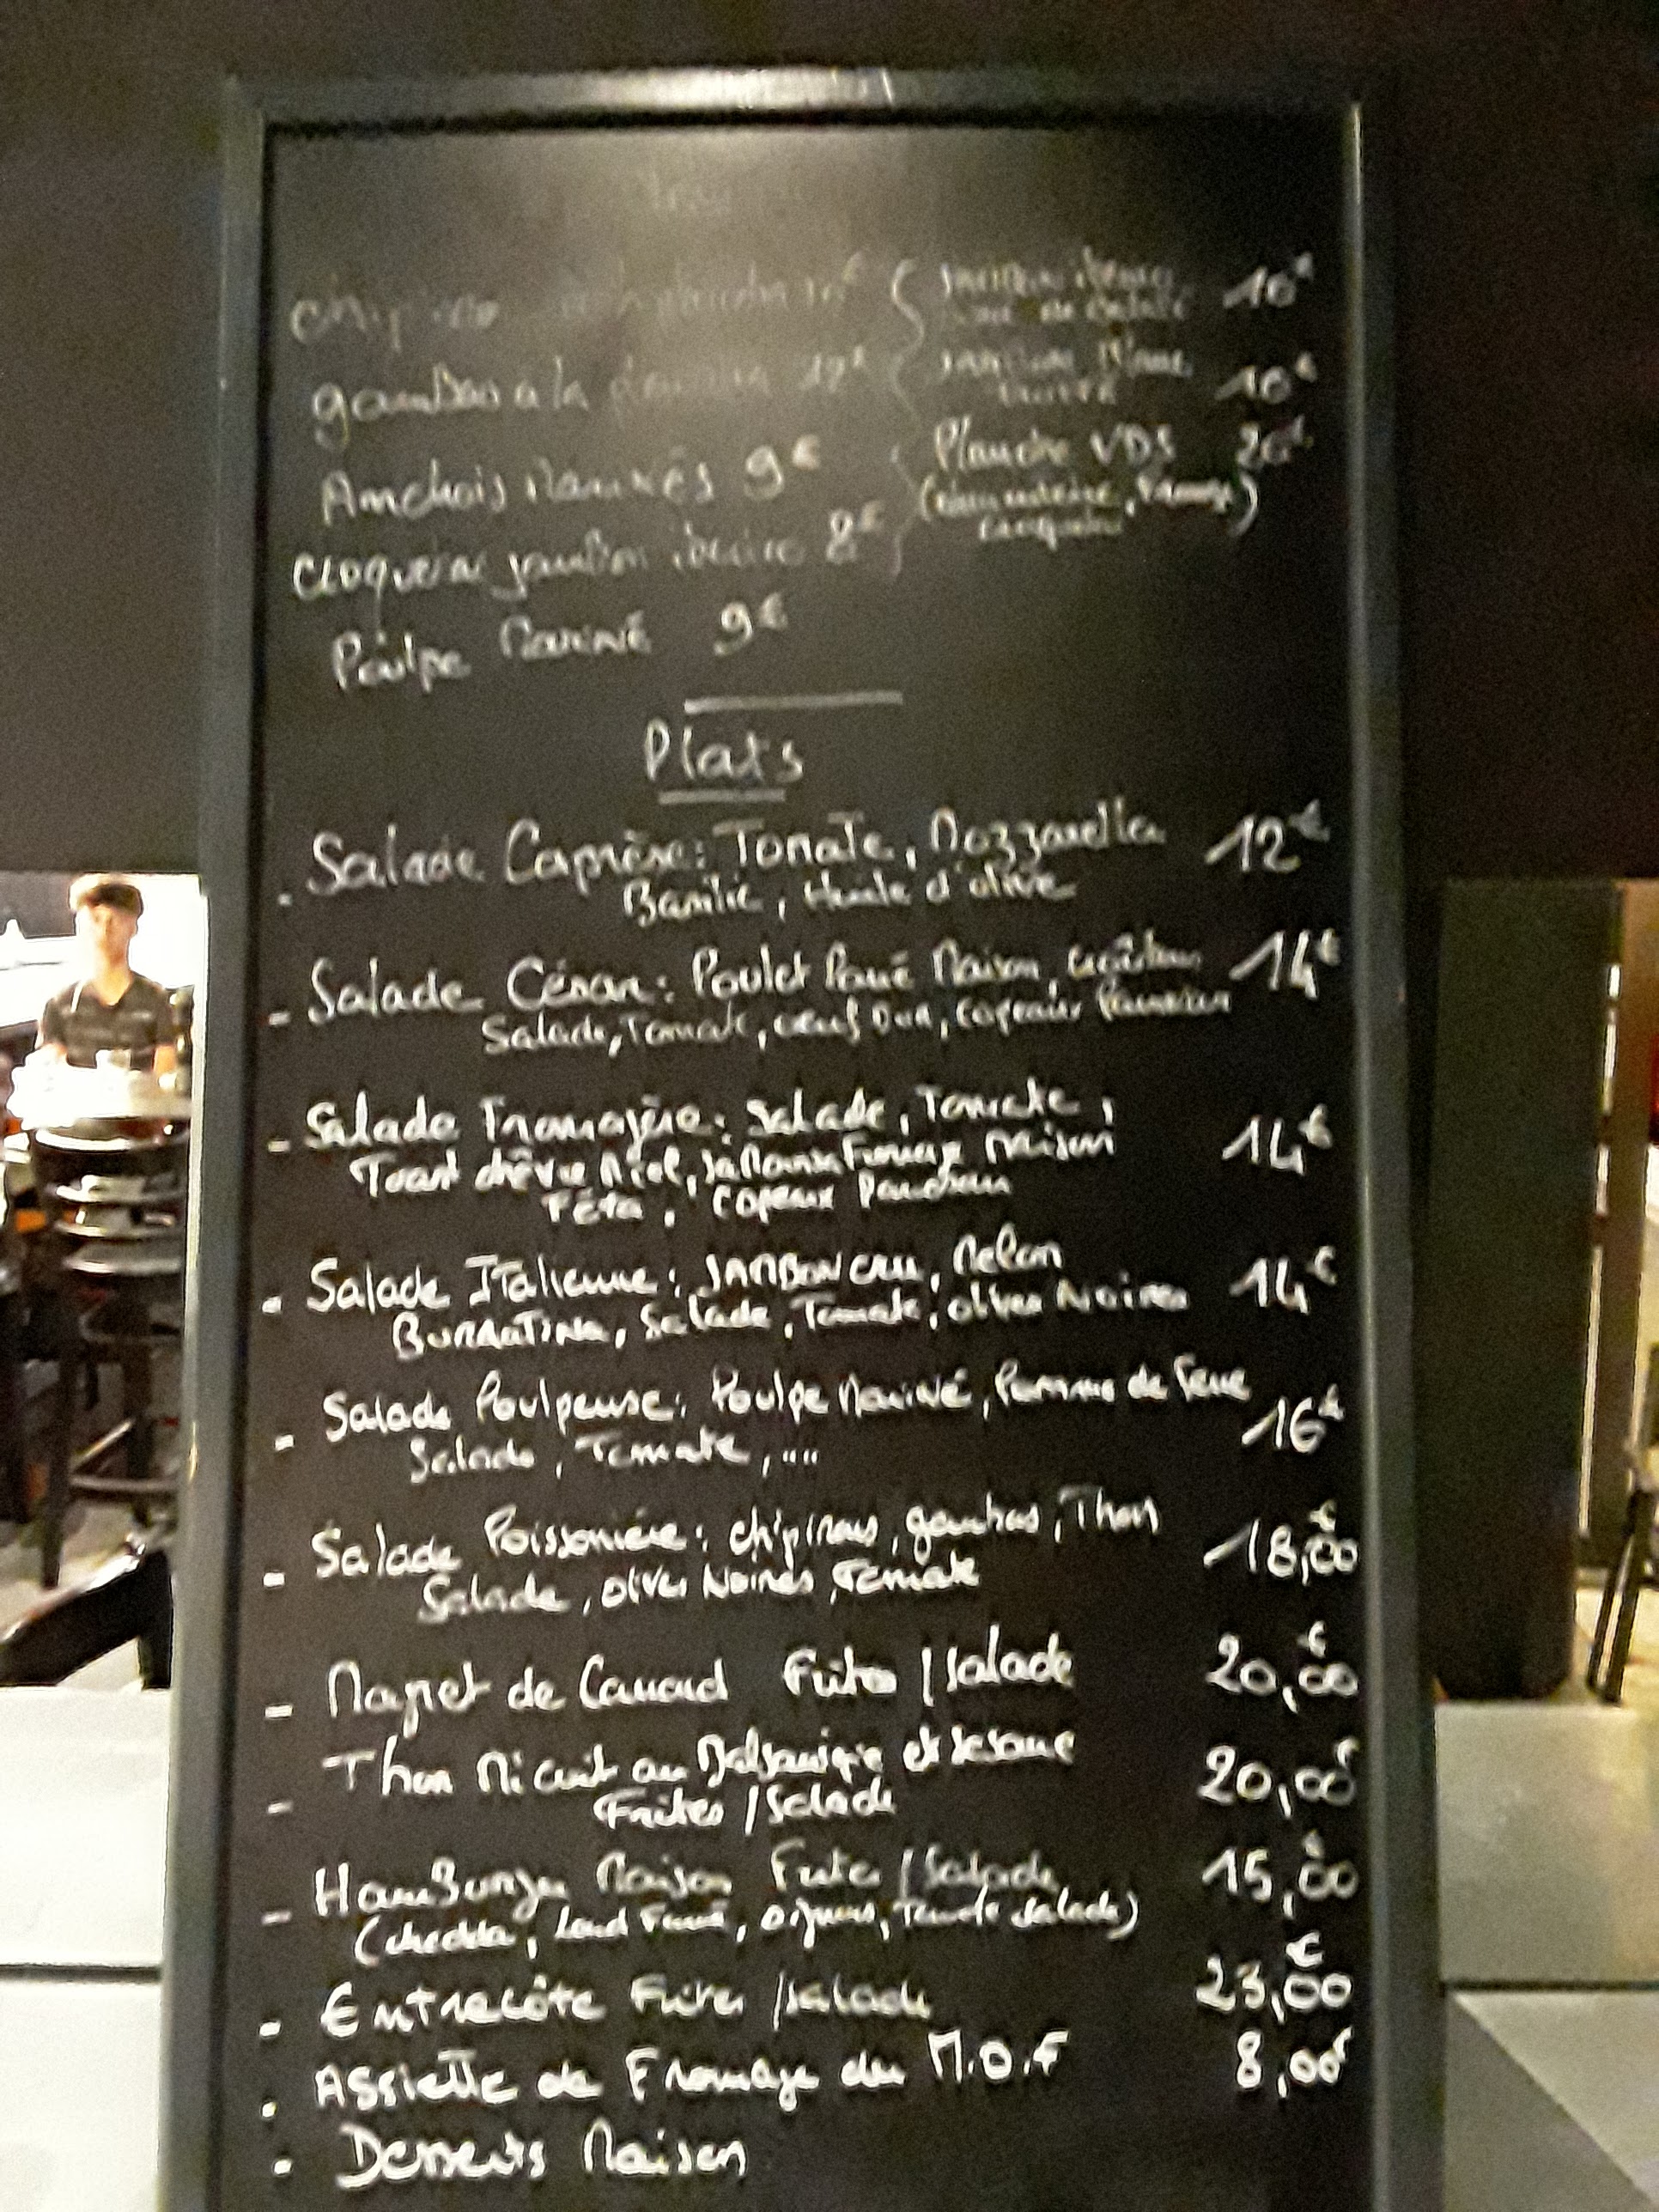 gambas a la 12€
Anchois Marinés 9€
croqueta jambon 8€
Poulpe Mariné 9€
10€
10€
Planche VDS 20€
Plats
. Salade Caprèse: Tomate, Mozzarella 12€
Basilic, Huile d'olive
- Salade César: Poulet Pané Maison, croûtons 14€
Salade, Tomate, oeuf Dur, copeaux Parmesan
- Salade Fromagère: Salade, Tomate, 14€
Toast chèvre Miel, Fromage Maison
Féta, copeaux Parmesan
- Salade Italienne: JAMBON CRU, Melon 14€
BURRATINA, Salade, Tomate, olives Noires
- Salade Poulpeuse: Poulpe Mariné, Pomme de Terre 16€
Salade, Tomate, ....
- Salade Poissonière: chipirons, gambas, Thon 18,00€
Salade, olives Noires, Tomate
- Magret de Canard Frites / Salade 20,00€
- Thon Mi cuit au Balsamique et sesame 20,00€
Frites / Salade
- Hamburger Maison Frites / Salade 15,00€
(chedda, Lard Fumé, oignons, Tomate Salade)
- Entrecôte Frites / Salade 23,00€
. Assiette de Fromage du M.O.F 8,00€
- Desserts Maison